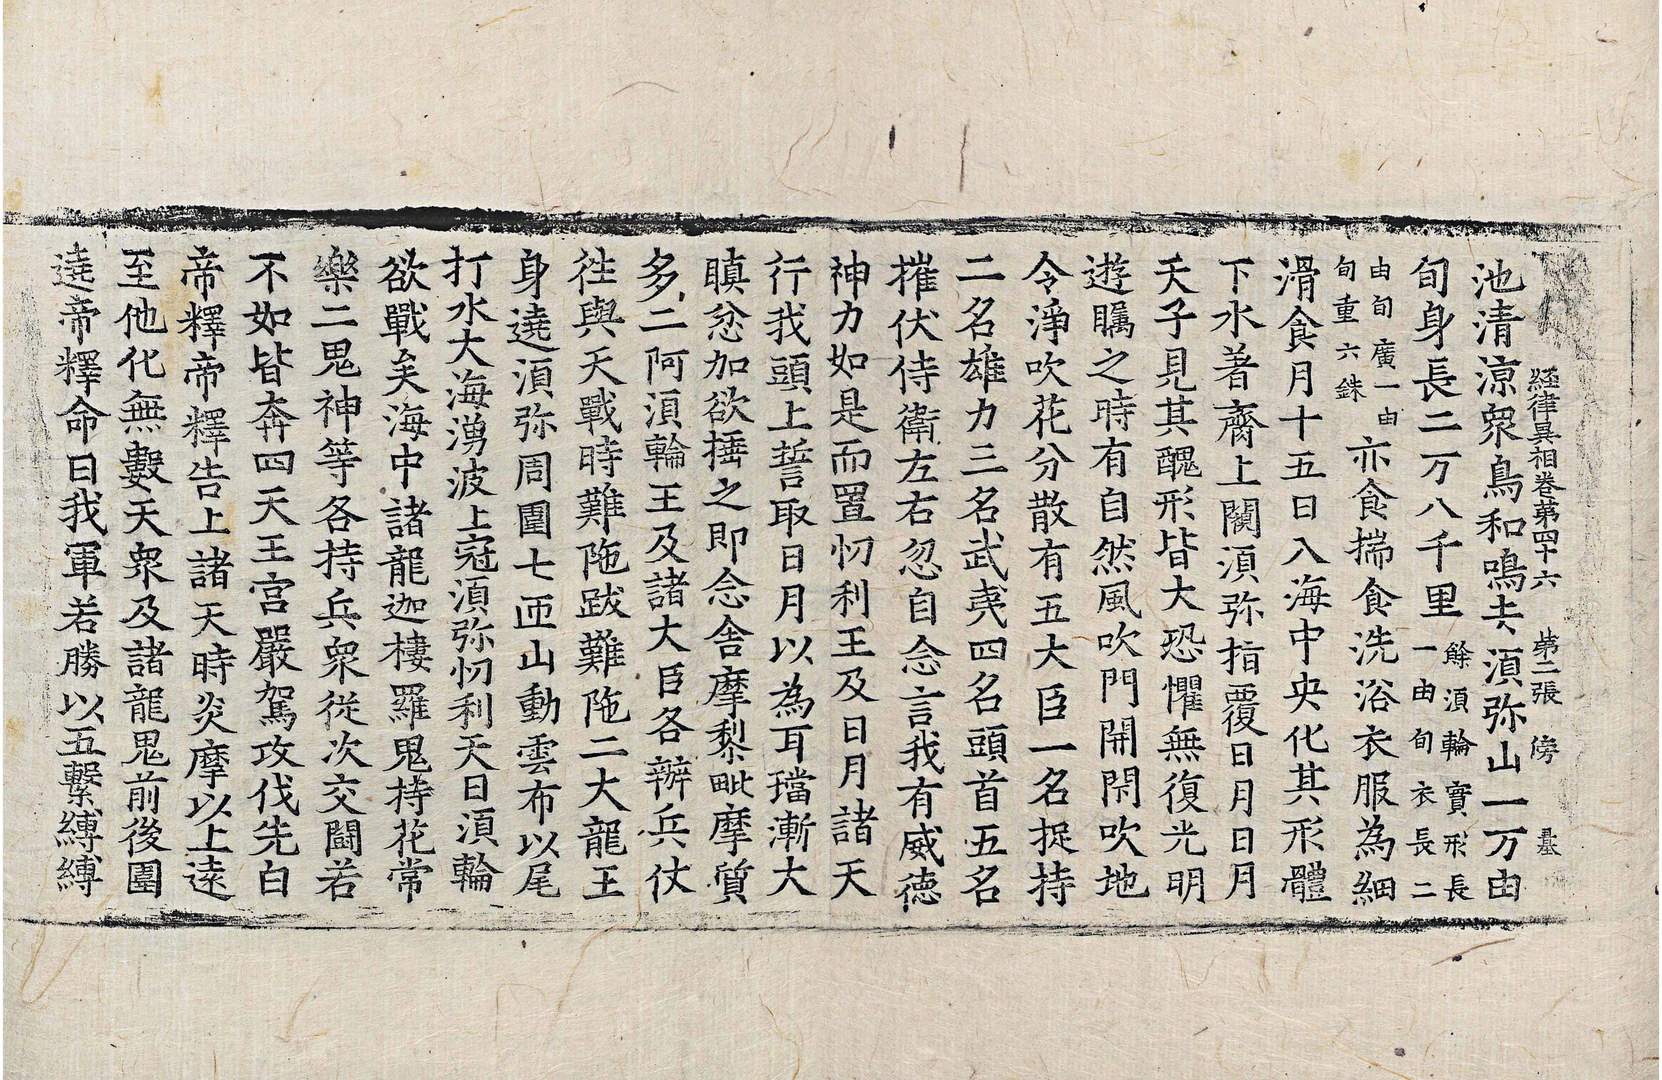 經律異相卷第四十六 第二張 傍 墓
池清涼衆鳥和鳴去湏弥山一万由
旬身長二万八千里餘湏輪實形長一由旬衣長二
由旬廣一由旬重六銖亦食揣食洗浴衣服為細
滑食月十五日入海中央化其形體
下水著齊上闚湏弥指覆日月日月
天子見其醜形皆大恐懼無復光明
遊矚之時有自然風吹門開閇吹地
令淨吹花分散有五大臣一名捉持
二名雄力三名武夷四名頭首五名
摧伏侍衛左右忽自念言我有威德
神力如是而置忉利王及日月諸天
行我頭上誓取日月以為耳璫漸大
瞋忿加欲捶之即念舍摩黎毗摩質
多二阿湏輪王及諸大臣各辦兵仗
徃與天戰時難陁跋難陁二大龍王
身遶湏弥周圍七匝山動雲布以尾
打水大海湧波上冠湏弥忉利天日湏輪
欲戰矣海中諸龍迦樓羅鬼持花常
樂二鬼神等各持兵衆從次交鬪若
不如皆奔四天王宮嚴駕攻伐先白
帝釋帝釋告上諸天時炎摩以上遠
至他化無數天衆及諸龍鬼前後圍
遶帝釋命曰我軍若勝以五繫縛縛